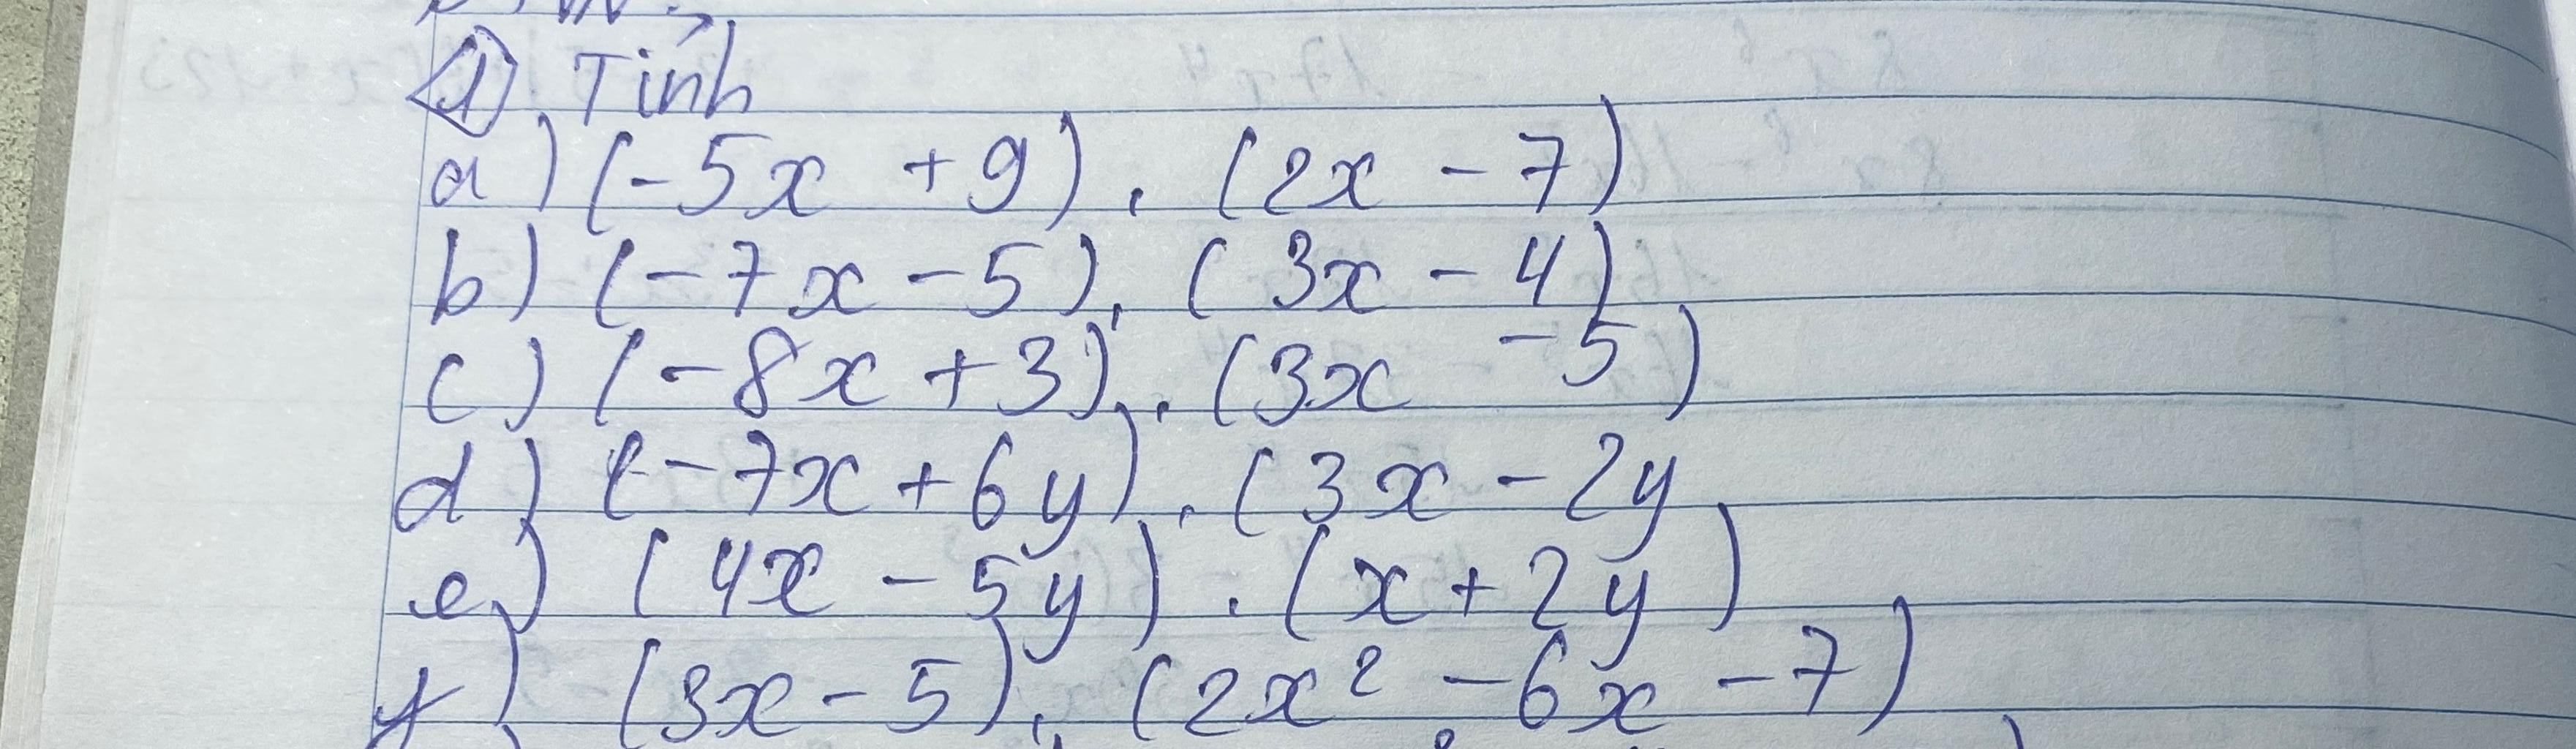 ① Tính
a) (-5x + 9) . (2x - 7)
b) (-7x - 5) . (3x - 4)
c) (-8x + 3) . (3x - 5)
d) (-7x + 6y) . (3x - 2y
e) (4x - 5y) . (x + 2y)
f) (3x - 5) . (2x² - 6x - 7)